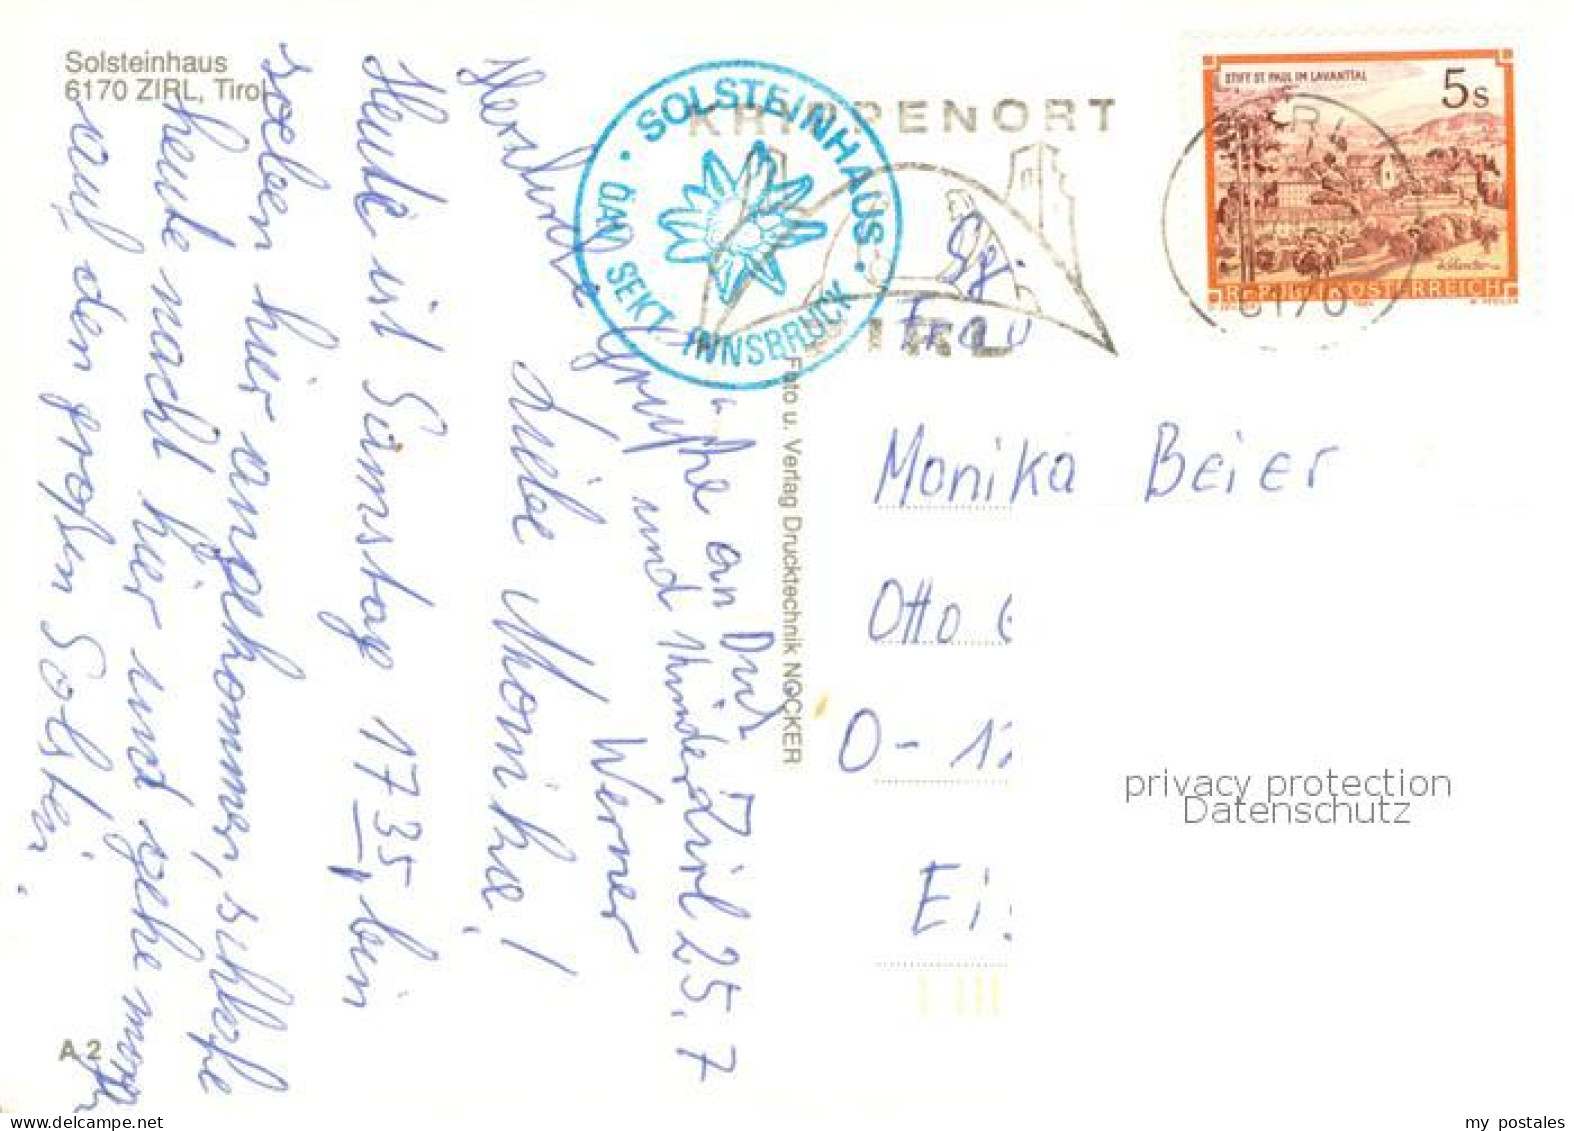 Solsteinhaus
6170 ZIRL, Tirol
Zirl 25.7
Liebe Monika!
Heute ist Samstag 17 35, bin
soeben hier angekommen, schlafe
heute nacht hier und gehe morgen
auf den großen Solstein.
Herzliche Grüße an Dich
und Kinder
Werner
A 2
Foto u. Verlag Drucktechnik NOCKER
· SOLSTEINHAUS ·
ÖAV SEKT. INNSBRUCK
KRIPPENORT
ZIRL
6170
STIFT ST. PAUL IM LAVANTTAL
5s
REPUBLIK ÖSTERREICH
Frau
Monika Beier
Otto G
O-12
Ei
privacy protection
Datenschutz
my postales